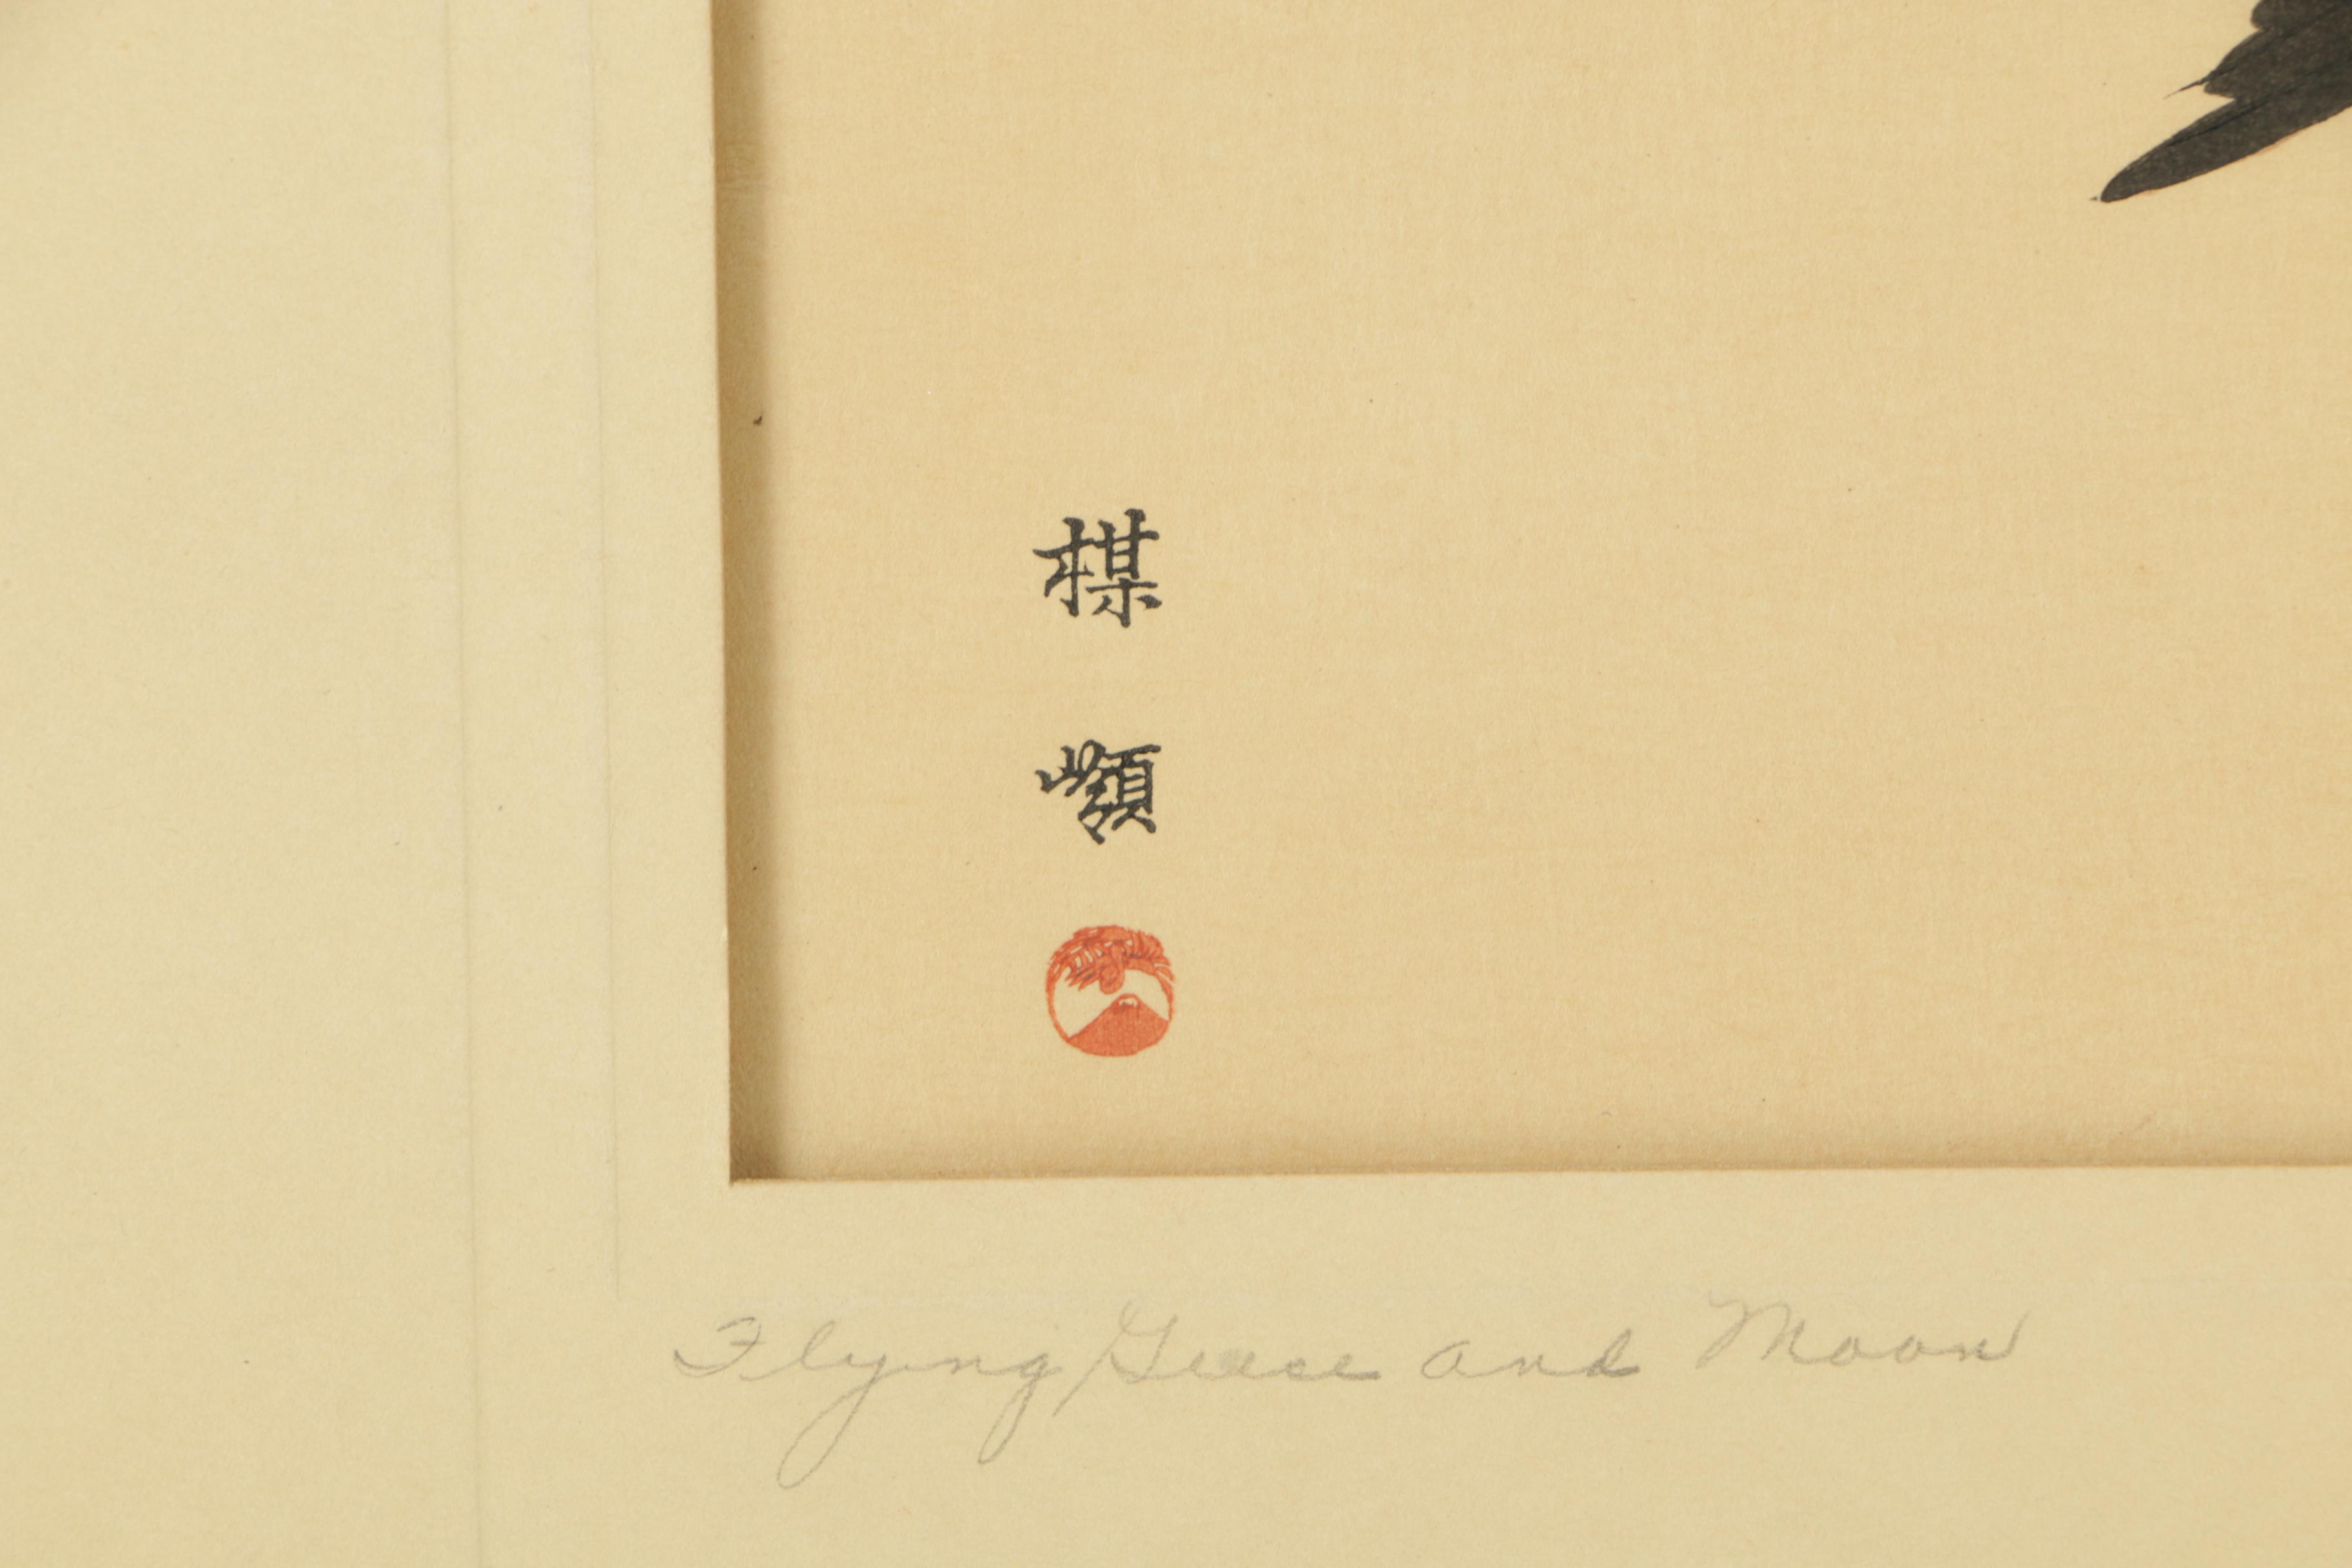 楳
嶺
Flying Geese and Moon